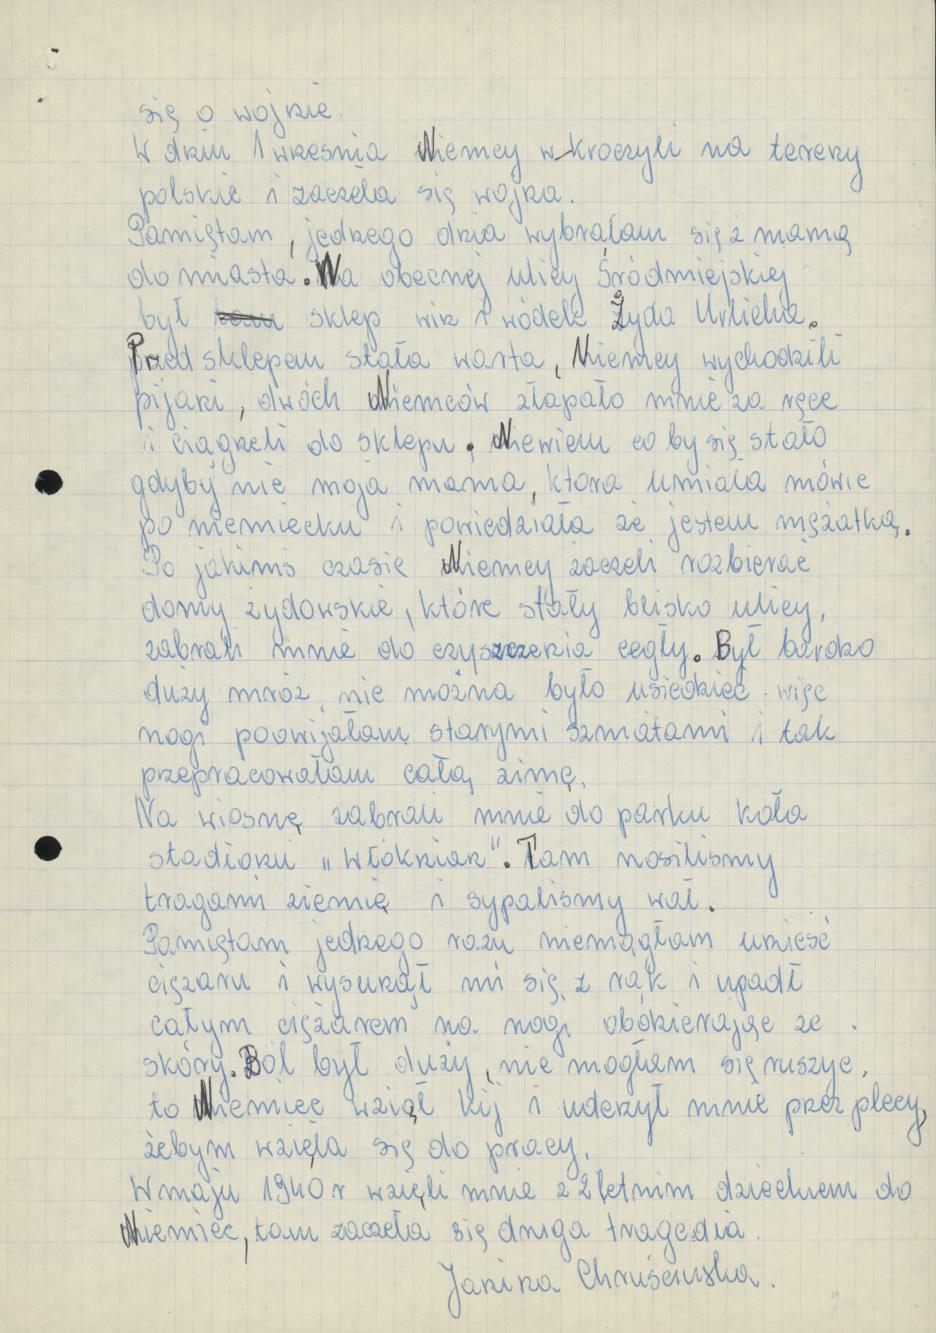 się o wojnie.
W dniu 1 wrzesnia Niemcy wkroczyli na tereny
polskie i zaczęła się wojna.
Pamiętam, jednego dnia wybrałam się z mamą
do miasta. Na obecnej ulicy Śródmiejskiej
był sklep win i wódek Żyda Urlicha.
Przed sklepem stała warta, Niemcy wychodzili
pijani, dwóch Niemców złapało mnie za ręce
i ciągneli do sklepu. Niewiem co by się stało
gdyby nie moja mama, ktora umiała mówic
po niemiecku i powiedziała że jestem mężatką.
Po jakimś czasie Niemcy zaczeli rozbierać
domy żydowskie, które stały blisko ulicy,
zabrali mnie do czyszczenia cegły. Był bardzo
duży mróz nie można było usiedzieć więc
nogi poowijałam starymi szmatami i tak
przepracowałam całą zimę.
Na wiosnę zabrali mnie do parku koła
stadionu „Włókniak". Tam nosilismy
tragami ziemię i sypalismy wał.
Pamiętam jednego razu niemągłam unieść
ciężaru i wysunął mi się z rąk i upadł
całym ciężarem na nogi obdzierając ze
skóry. Ból był duży, nie mogłam się ruszyc,
to Niemiec wziął kij i uderzył mnie przez plecy,
żebym wzięła się do pracy.
W maju 1940 r wzięli mnie z 2 letnim dzieckiem do
Niemiec, tam zaczęła się druga tragedia.
Janina Chruścińska.